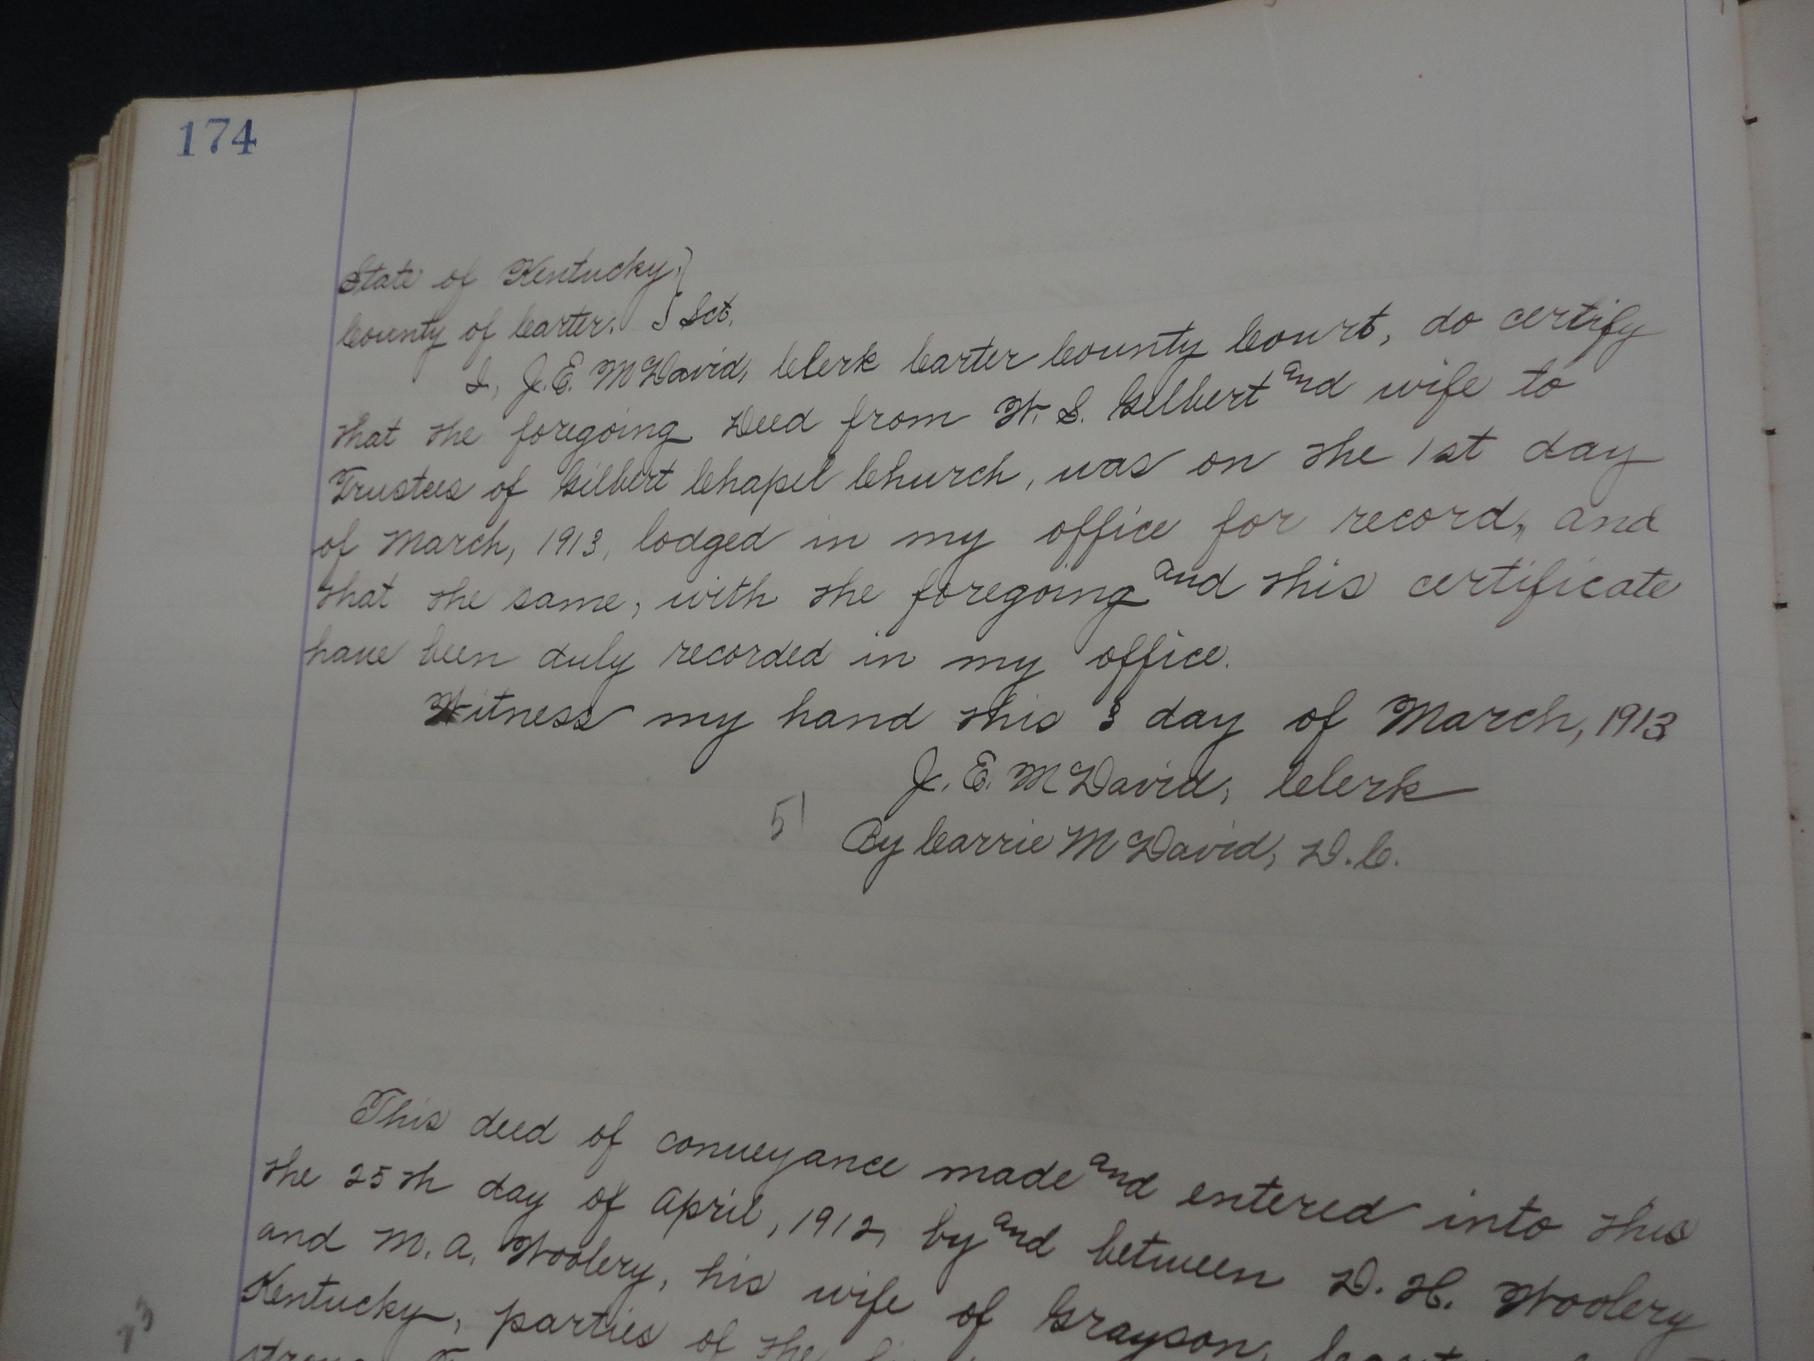 174
State of Kentucky,}
County of Carter. } Sct.
I, J. E. McDavid, Clerk Carter County Court, do certify
that the foregoing Deed from W. S. Gilbert and wife to
Trustees of Gilbert Chapel Church, was on the 1st day
of March, 1913, lodged in my office for record, and
that the same, with the foregoing and this certificate
have been duly recorded in my office.
Witness my hand this 3 day of March, 1913
J. E. McDavid, Clerk
51
By Carrie McDavid, D.C.
This deed of conveyance made and entered into this
the 25th day of April, 1912, by and between D. H. Woolery
and M. A. Woolery, his wife of Grayson,
Kentucky, parties of the